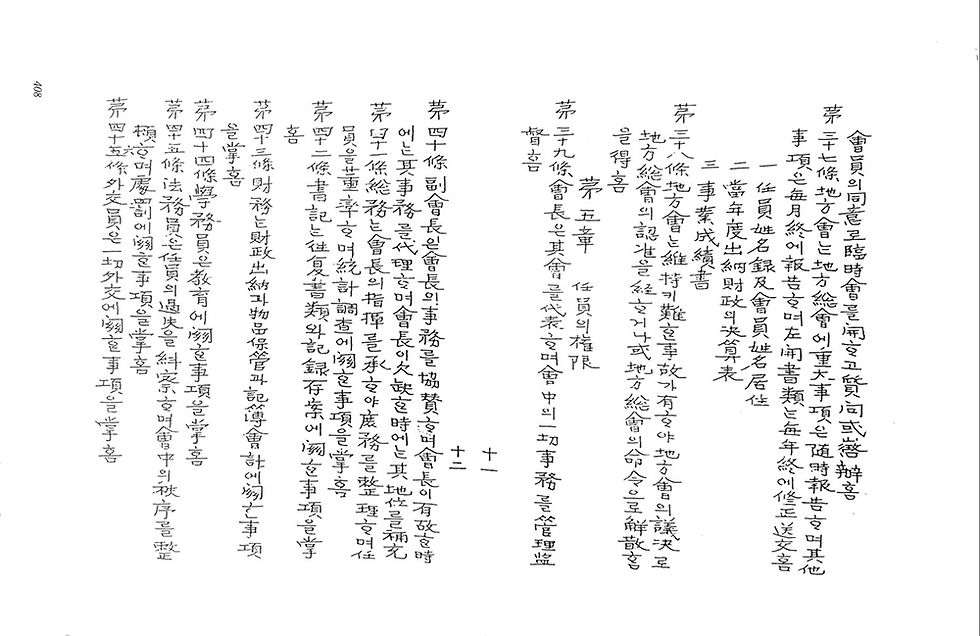 會員의同意로臨時會를開ᄒᆞ고質問或懲辦홈
第三十七條地方會는地方總會에重大事項은隨時報告ᄒᆞ며其他
事項은每月終에報告ᄒᆞ며左開書類는每年終에修正送交홈
一 任員姓名錄及會員姓名居住
二 當年度出納財政의决算表
三 事業成績書
第三十八條地方會는維持키難ᄒᆞᆫ事故가有ᄒᆞ야地方會의議决로
地方總會의認准을經ᄒᆞ거나或地方總會의命令으로解散홈
을得홈
第五章 任員의權限
第三十九條會長은其會를代表ᄒᆞ며會中의一切事務를管理監
督홈
十一
十二
第四十條副會長은會長의事務를協贊ᄒᆞ며會長이有故ᄒᆞᆫ時
에는其事務를代理ᄒᆞ며會長이欠缺ᄒᆞᆫ時에는其地位를補充
第四十一條總務는會長의指揮를承ᄒᆞ야庶務를整理ᄒᆞ며任
員을董率ᄒᆞ며統計調查에關ᄒᆞᆫ事項을掌홈
第四十二條書記는往復書類와記錄存案에關ᄒᆞᆫ事項을掌
홈
第四十三條財務는財政出納과物品保管과記簿會計에關ᄒᆞᆫ事項
을掌홈
第四十四條學務員은敎育에關ᄒᆞᆫ事項을掌홈
第四十五條法務員은任員의過失을糾察ᄒᆞ며會中의秩序를整
頓ᄒᆞ며處罰에關ᄒᆞᆫ事項을掌홈
第四十五條外交員은一切外交에關ᄒᆞᆫ事項을掌홈
408